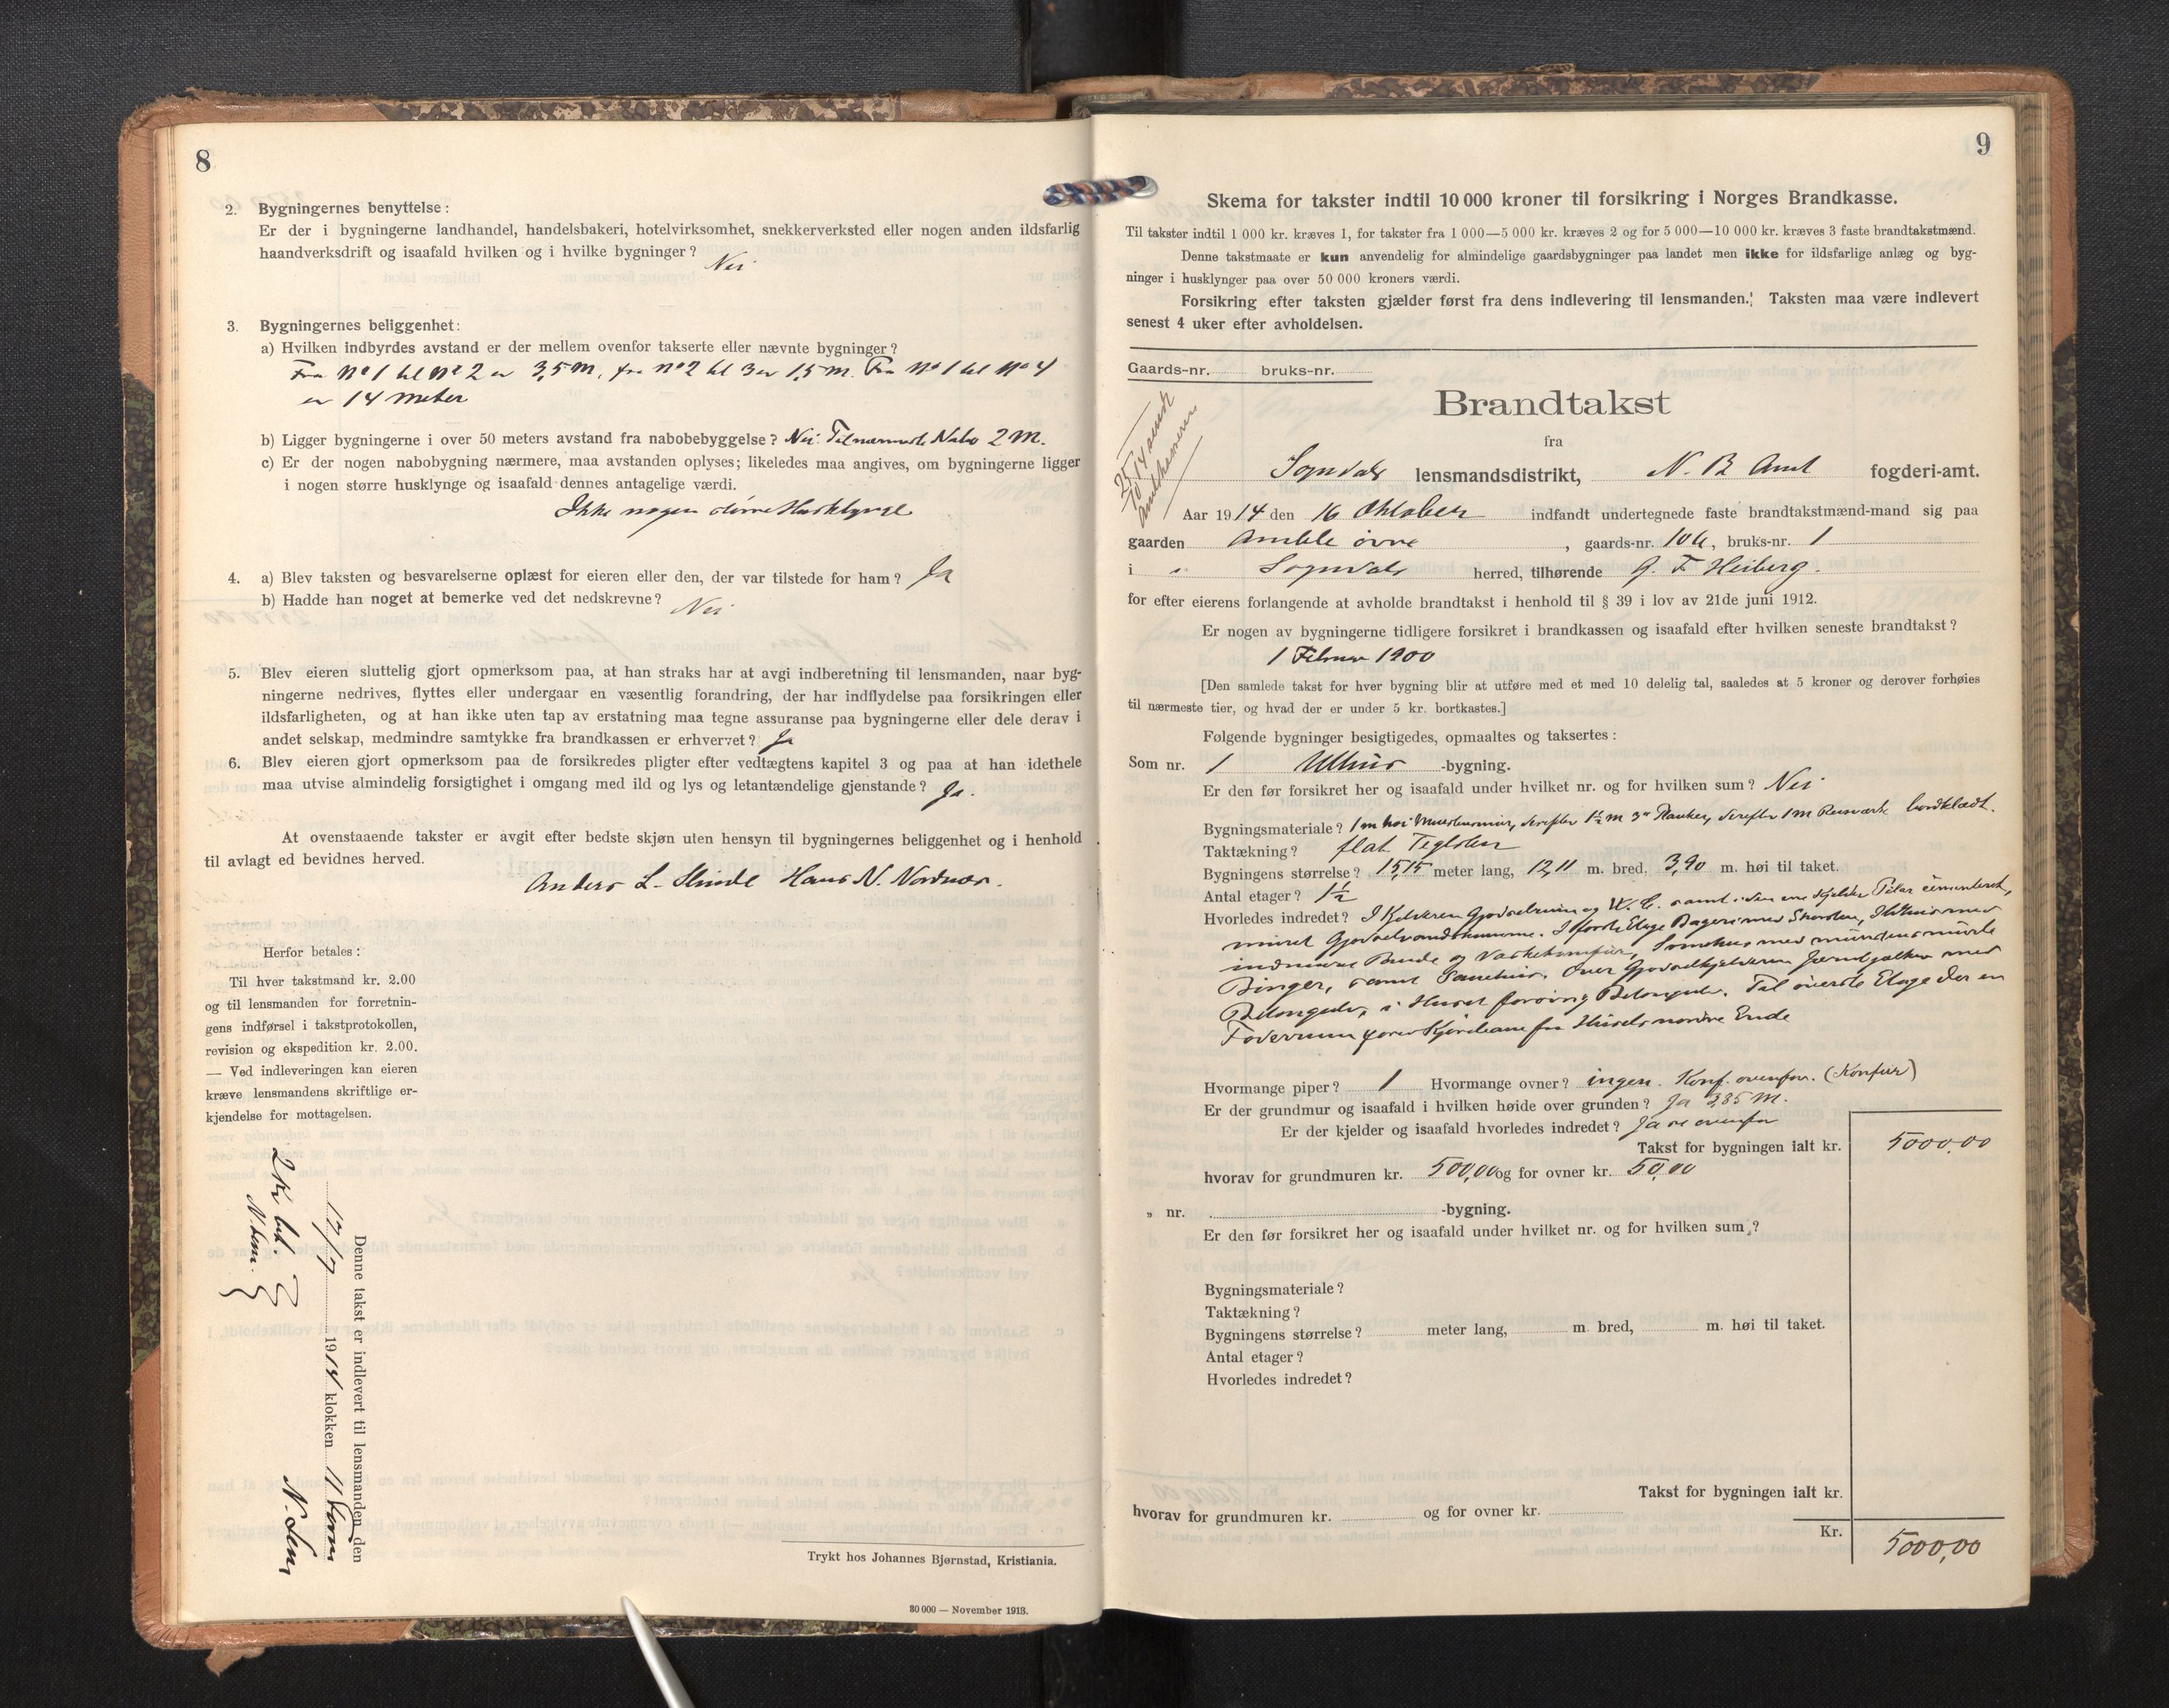 8
2. Bygningernes benyttelse:
Er der i bygningerne landhandel, handelsbakeri, hotelvirksomhet, snekkerverksted eller nogen anden ildsfarlig
haandverksdrift og isaafald hvilken og i hvilke bygninger? Nei
3. Bygningernes beliggenhet:
a) Hvilken indbyrdes avstand er der mellem ovenfor takserte eller nævnte bygninger?
Fra No 1 til No 2 er 3,5 m, fra No 2 til 3 er 1,5 m. Fra No 1 til No 4
er 14 meter
b) Ligger bygningerne i over 50 meters avstand fra nabobebyggelse? Nei. Nabo 2 m.
c) Er der nogen nabobygning nærmere, maa avstanden oplyses; likeledes maa angives, om bygningerne ligger
i nogen større husklynge og isaafald dennes antagelige værdi.
Ikke nogen större Husklynge
4. a) Blev taksten og besvarelserne oplæst for eieren eller den, der var tilstede for ham? Ja
b) Hadde han noget at bemerke ved det nedskrevne? Nei
5. Blev eieren sluttelig gjort opmerksom paa, at han straks har at avgi indberetning til lensmanden, naar byg-
ningerne nedrives, flyttes eller undergaar en væsentlig forandring, der har indflydelse paa forsikringen eller
ildsfarligheten, og at han ikke uten tap av erstatning maa tegne assuranse paa bygningerne eller dele derav i
andet selskap, medmindre samtykke fra brandkassen er erhvervet? Ja
6. Blev eieren gjort opmerksom paa de forsikredes pligter efter vedtægtens kapitel 3 og paa at han idethele
maa utvise almindelig forsigtighet i omgang med ild og lys og letantændelige gjenstande? Ja.
At ovenstaaende takster er avgit efter bedste skjøn uten hensyn til bygningernes beliggenhet og i henhold
til avlagt ed bevidnes herved.
Anders L. Hans N. Nordnæs.
Herfor betales:
Til hver takstmand kr. 2.00
og til lensmanden for forretnin-
gens indførsel i takstprotokollen,
revision og ekspedition kr. 2.00.
— Ved indleveringen kan eieren
kræve lensmandens skriftlige er-
kjendelse for mottagelsen.
2 Kr bet.
Denne takst er indlevert til lensmanden den
17/7 1914 klokken 11
Trykt hos Johannes Bjørnstad, Kristiania.
30 000 — November 1913.
9
Skema for takster indtil 10 000 kroner til forsikring i Norges Brandkasse.
Til takster indtil 1 000 kr. kræves 1, for takster fra 1 000—5 000 kr. kræves 2 og for 5 000—10 000 kr. kræves 3 faste brandtakstmænd.
Denne takstmaate er kun anvendelig for almindelige gaardsbygninger paa landet men ikke for ildsfarlige anlæg og byg-
ninger i husklynger paa over 50 000 kroners værdi.
Forsikring efter taksten gjælder først fra dens indlevering til lensmanden. Taksten maa være indlevert
senest 4 uker efter avholdelsen.
Gaards-nr. bruks-nr.
Brandtakst
fra
Sogndals lensmandsdistrikt, N. B. Amt fogderi-amt.
Aar 1914 den 16 Oktober indfandt undertegnede faste brandtakstmænd-mand sig paa
gaarden Amble övre, gaards-nr. 106, bruks-nr. 1
i " Sogndals herred, tilhørende G. F. Heiberg.
for efter eierens forlangende at avholde brandtakst i henhold til § 39 i lov av 21de juni 1912.
Er nogen av bygningerne tidligere forsikret i brandkassen og isaafald efter hvilken seneste brandtakst?
1 Februar 1900
[Den samlede takst for hver bygning blir at utføre med et med 10 delelig tal, saaledes at 5 kroner og derover forhøies
til nærmeste tier, og hvad der er under 5 kr. bortkastes.]
Følgende bygninger besigtigedes, opmaaltes og taksertes:
Som nr. 1 Uthus -bygning.
Er den før forsikret her og isaafald under hvilket nr. og for hvilken sum? Nei
Bygningsmateriale? 1 m höi derefter 1½ m 3" Planker, derefter 1 m bordklædt.
Taktækning? flat Teglsten
Bygningens størrelse? 15,15 meter lang, 12,11 m. bred, 3,90 m. høi til taket.
Antal etager? 1½
Hvorledes indredet? I Kjelderen og W. C. samt cementeret,
muret I förste Etage med Skorsten, Ildhus med
indmuret Pande og
Binger, samt Over med
i Huset Til överste Etage der er
Foderrum Kjörebane fra Husets nordre Ende
Hvormange piper? 1 Hvormange ovner? ingen. Konf. ovenfor. (Komfur)
Er der grundmur og isaafald i hvilken høide over grunden? Ja 2,85 m.
Er der kjelder og isaafald hvorledes indredet? Ja se ovenfor
Takst for bygningen ialt kr. 5000,00
hvorav for grundmuren kr. 500,00 og for ovner kr. 50,00
„ nr. -bygning.
Er den før forsikret her og isaafald under hvilket nr. og for hvilken sum?
Bygningsmateriale?
Taktækning?
Bygningens størrelse? meter lang, m. bred, m. høi til taket.
Antal etager?
Hvorledes indredet?
Takst for bygningen ialt kr.
hvorav for grundmuren kr. og for ovner kr.
Kr. 5000,00